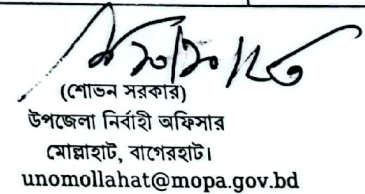 (শোভন সরকার)
উপজেলা নির্বাহী অফিসার
মোল্লাহাট, বাগেরহাট।
unomollahat@mopa.gov.bd